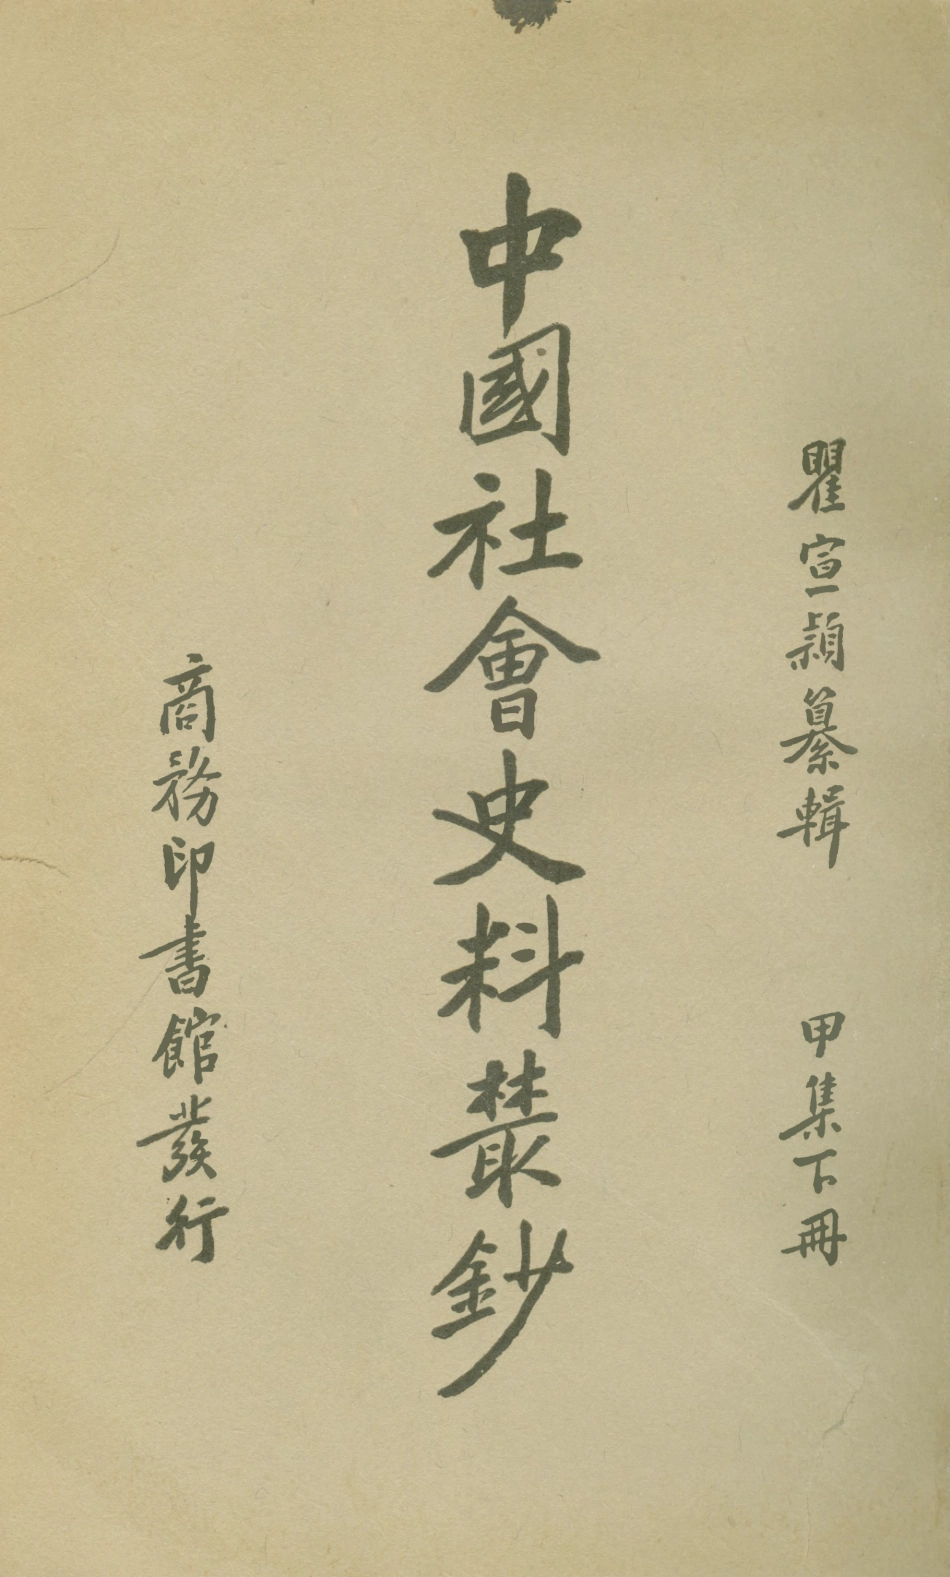 瞿宣穎纂輯　甲集下冊
中國社會史料叢鈔
商務印書館發行